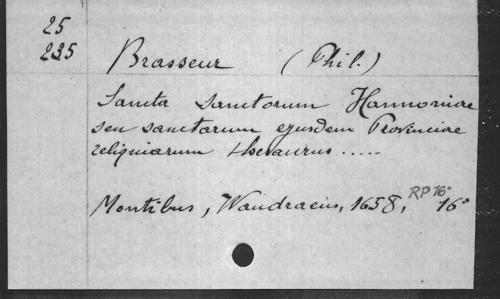 25
235
Brasseur (Phil.)
Sancta Sanctorum Hannoniae
seu sanctarum ejusdem Provinciae
reliquiarum thesaurus.....
RP 16°
Montibus, Waudraeus, 1658, 16°